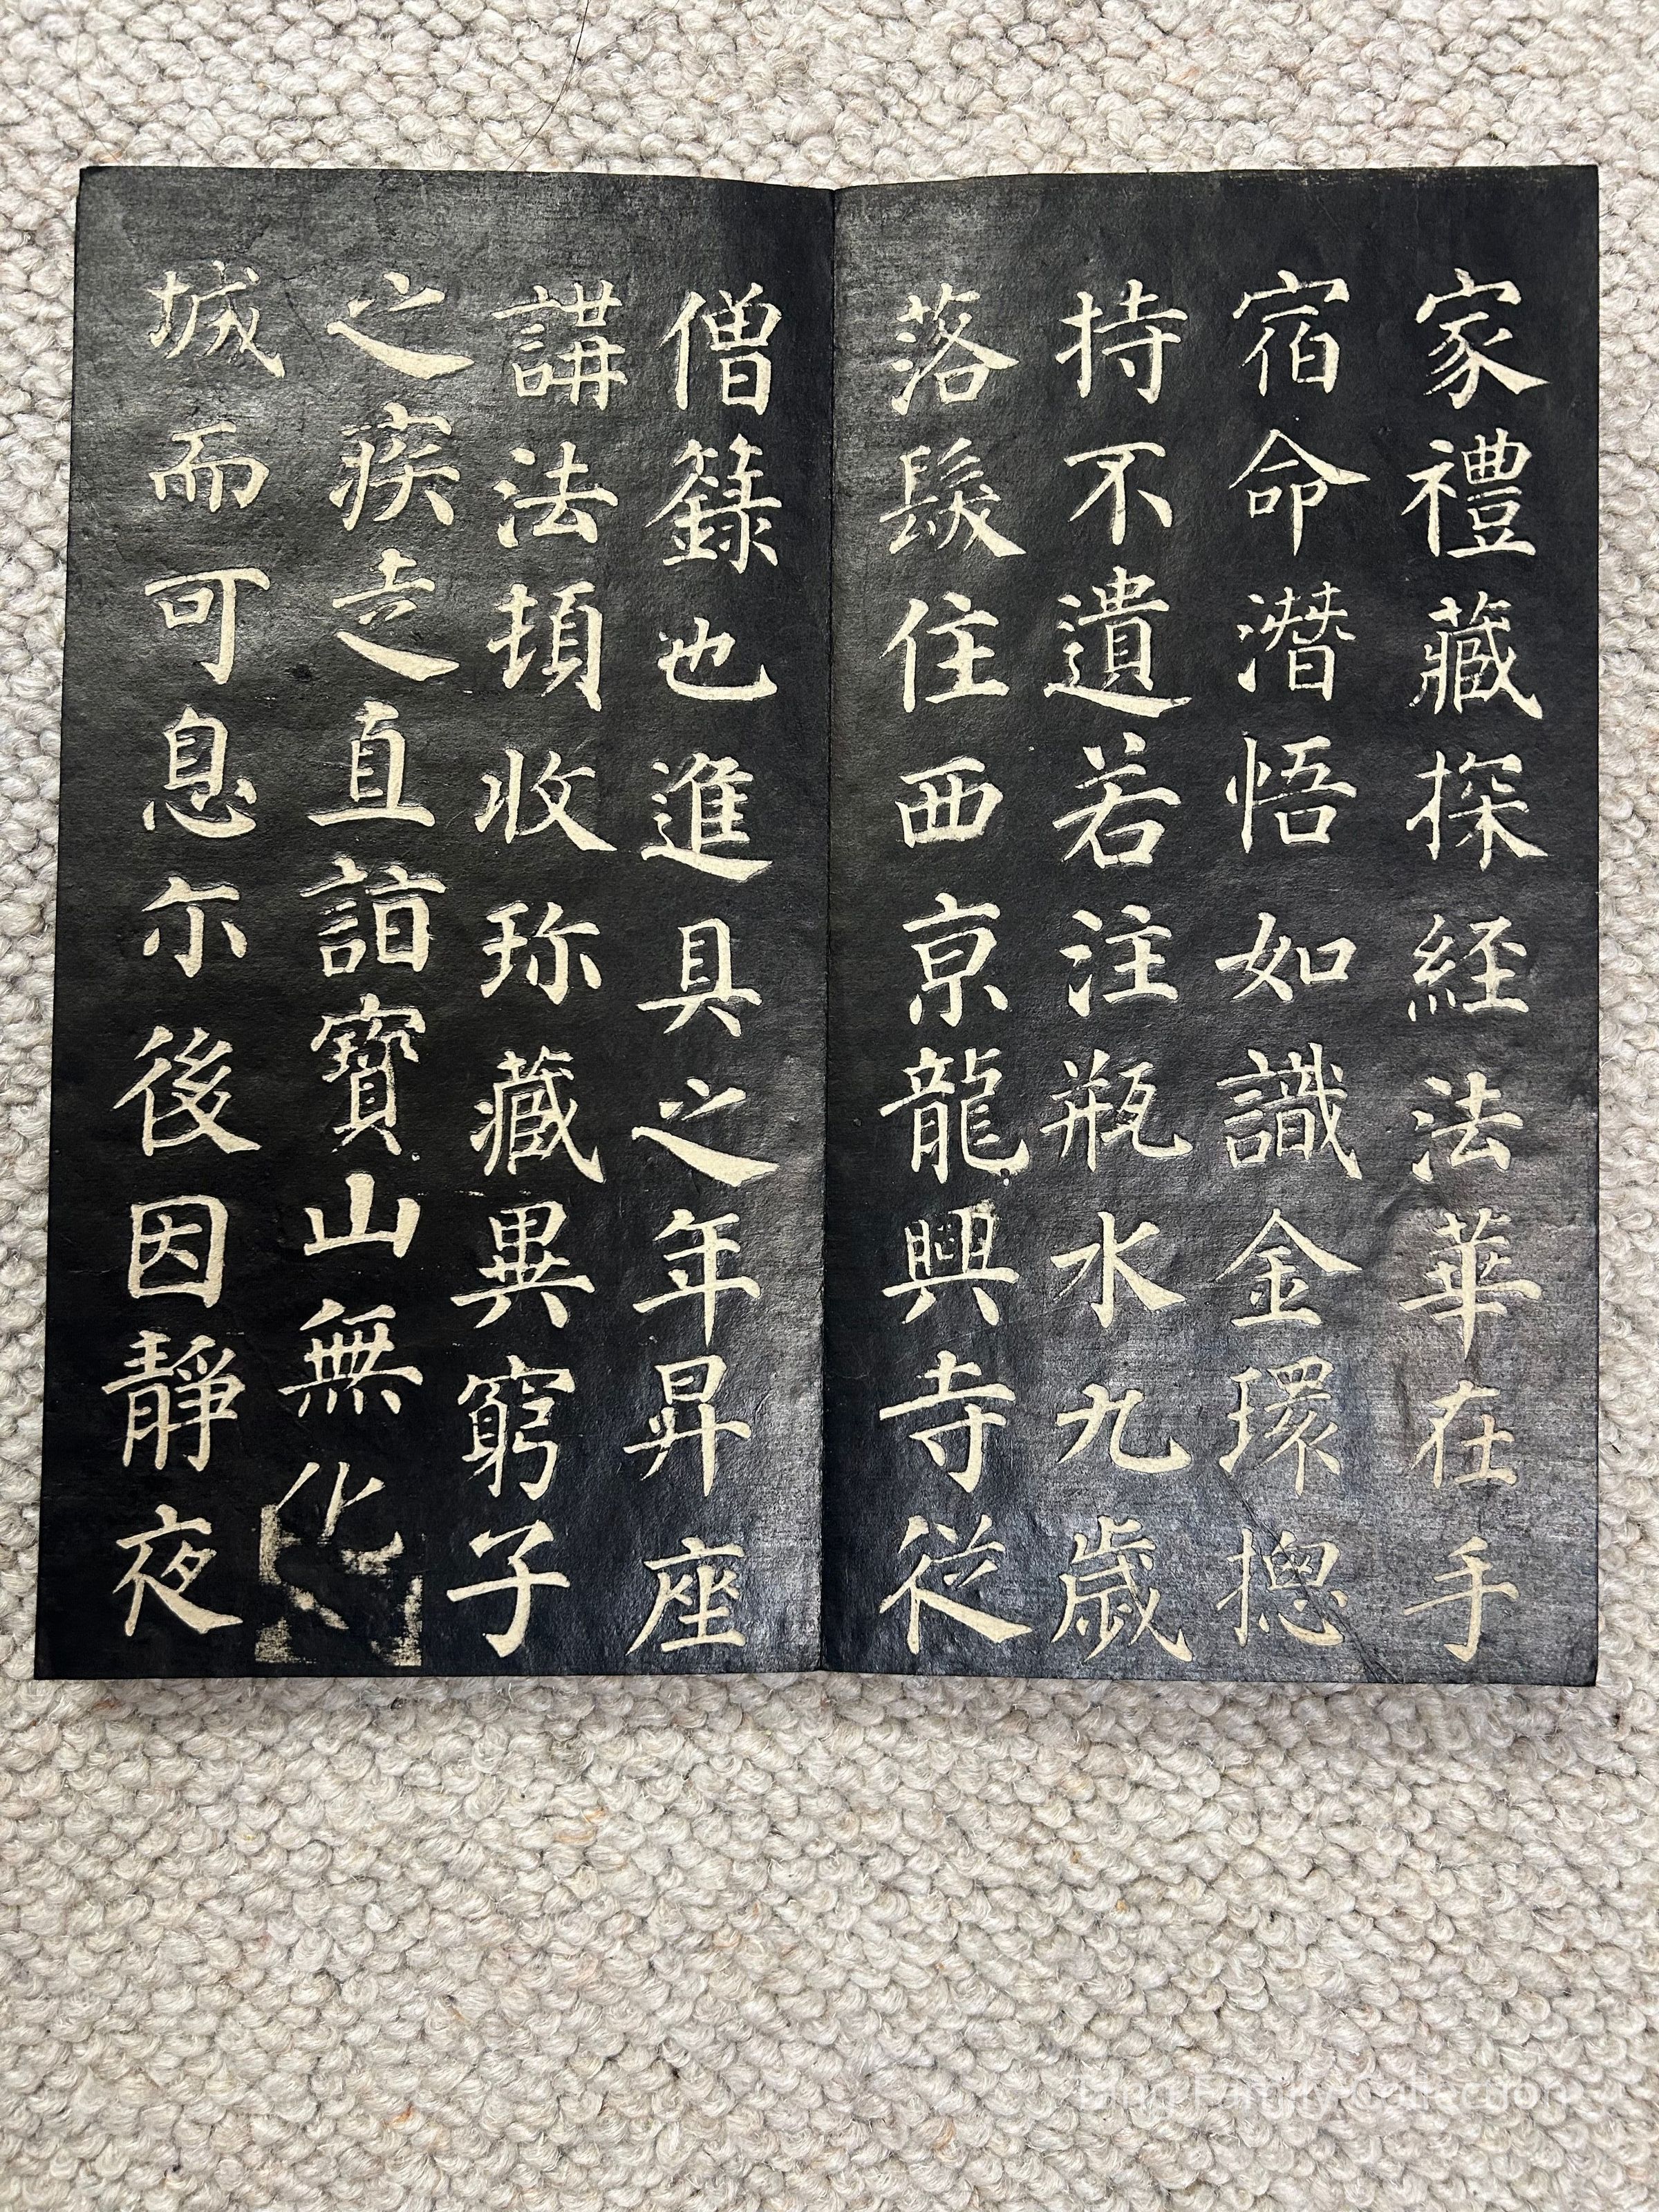 家禮藏探經法華在手
宿命潛悟如識金環揔
持不遺若注瓶水九歲
落髮住西京龍興寺從
僧籙也進具之年昇座
講法頓收珎藏異窮子
之疾走直詣寶山無化
城而可息尒後因靜夜
Ding Family Collection